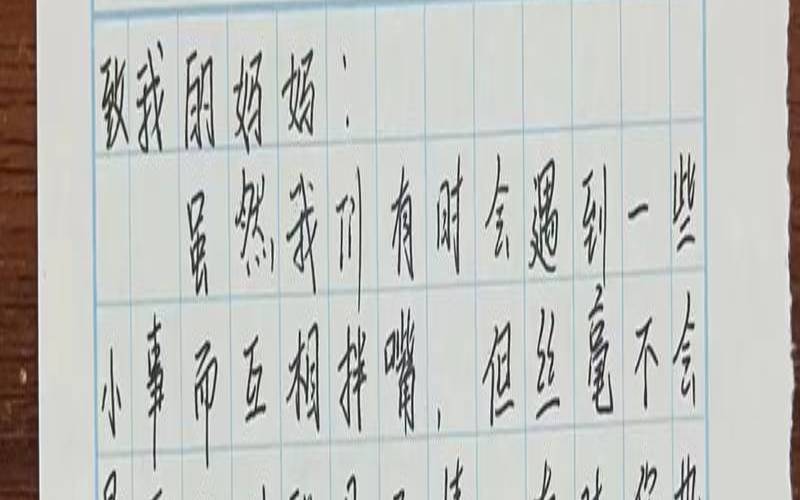 致我的妈妈：
虽然我们有时会遇到一些
小事而互相拌嘴，但丝毫不会